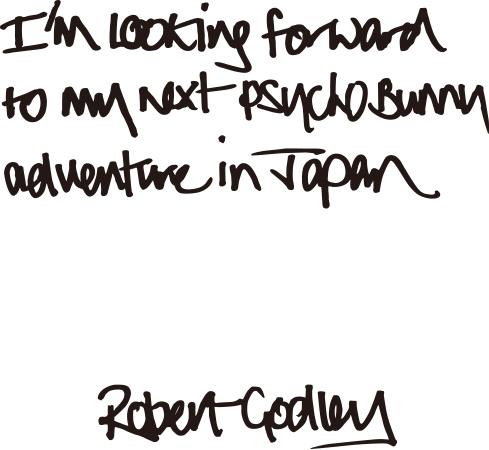 I'm looking forward
to my next psycho Bunny
adventure in Japan
Robert Godley